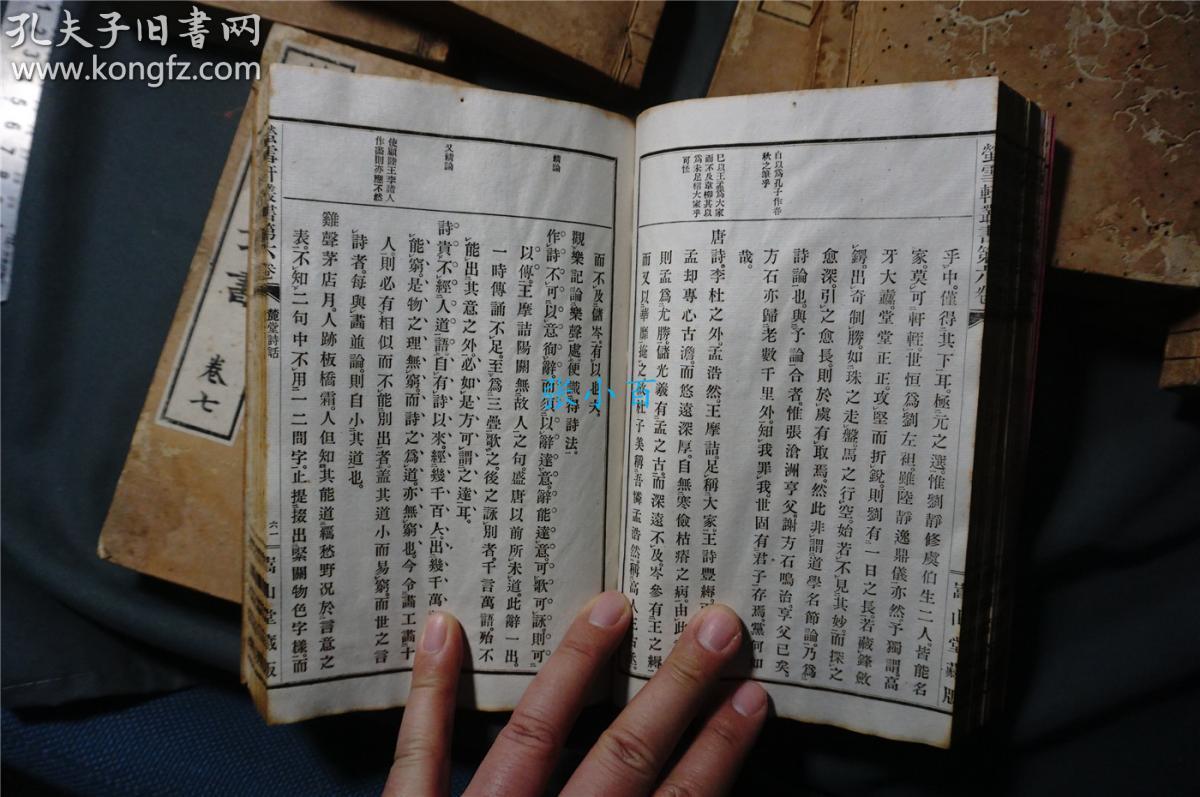 孔夫子旧书网
www.kongfz.com
螢雪軒叢書第六卷
嵩山堂藏版
自以爲孔子作春
秋之筆乎
已以王孟爲大家
而不及韋柳其以
爲未足稱大家乎
可怪
乎中。僅得其下耳。極元之選。惟劉靜修虞伯生二人。皆能名
家。莫可軒輊。世恒爲劉左袒。雖陸靜逸鼎儀亦然。予獨謂。高
牙大纛。堂堂正正。攻堅而折銳。則劉有一日之長。若藏鋒斂
鍔。出奇制勝。如珠之走盤。馬之行空。始若不見其妙。而探之
愈深。引之愈長。則於虞有取焉。然此非謂道學名節論。乃爲
詩論也。與予論合者。惟張滄洲亨父。謝方石鳴治。亨父已矣。
方石亦歸老數千里外。知我罪我。世固有君子存焉。黨何如
哉。
唐詩李杜之外。孟浩然。王摩詰。足稱大家。王詩豐縟
孟却專心古澹。而悠遠深厚。自無寒儉枯瘠之病。由此
則孟爲尤勝。儲光羲有孟之古。而深遠不及。岑參有王之縟。
而又以華靡掩之。故杜子美稱吾憐孟浩然。稱高人王右丞。
張小百
精論
又精論
使顧陸王李諸人
作畵則亦應不然
而不及儲岑。有以也夫。
觀樂記論樂聲處。便識得詩法。
作詩不可以意徇辭。而須以辭達意。辭能達意。可歌可詠。則可
以傳。王摩詰陽關無故人之句。盛唐以前所未道。此辭一出。
一時傳誦不足。至爲三疊歌之。後之詠別者。千言萬語。殆不
能出其意之外。必如是。方可謂之達耳。
詩貴不經人道語。自有詩以來。經幾千百人。出幾千萬
能窮。是物之理無窮。而詩之爲道。亦無窮也。今令畵工畵十
人。則必有相似而不能別出者。蓋其道小而易窮。而世之言
詩者。每與畵並論。則自小其道也。
雞聲茅店月。人跡板橋霜。人但知其能道羈愁野況於言意之
表。不知二句中不用一二閒字。止提掇出緊關物色字樣。而
螢雪軒叢書第六卷
麓堂詩話
六二
嵩山堂藏版
書
卷七